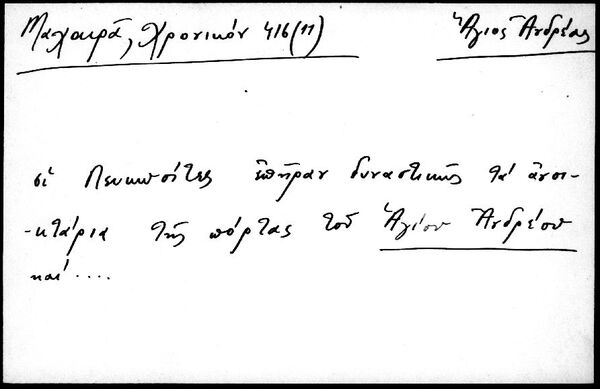 Μαχαιρᾶ, Χρονικόν 416(11)
Ἅγιος Ἀνδρέας
οἱ Λευκωσίτες ἐπῆραν δυναστικῶς τὰ ἀνοι-
-κτάρια τῆς πόρτας τοῦ Ἁγίου Ἀνδρέου
καὶ ....